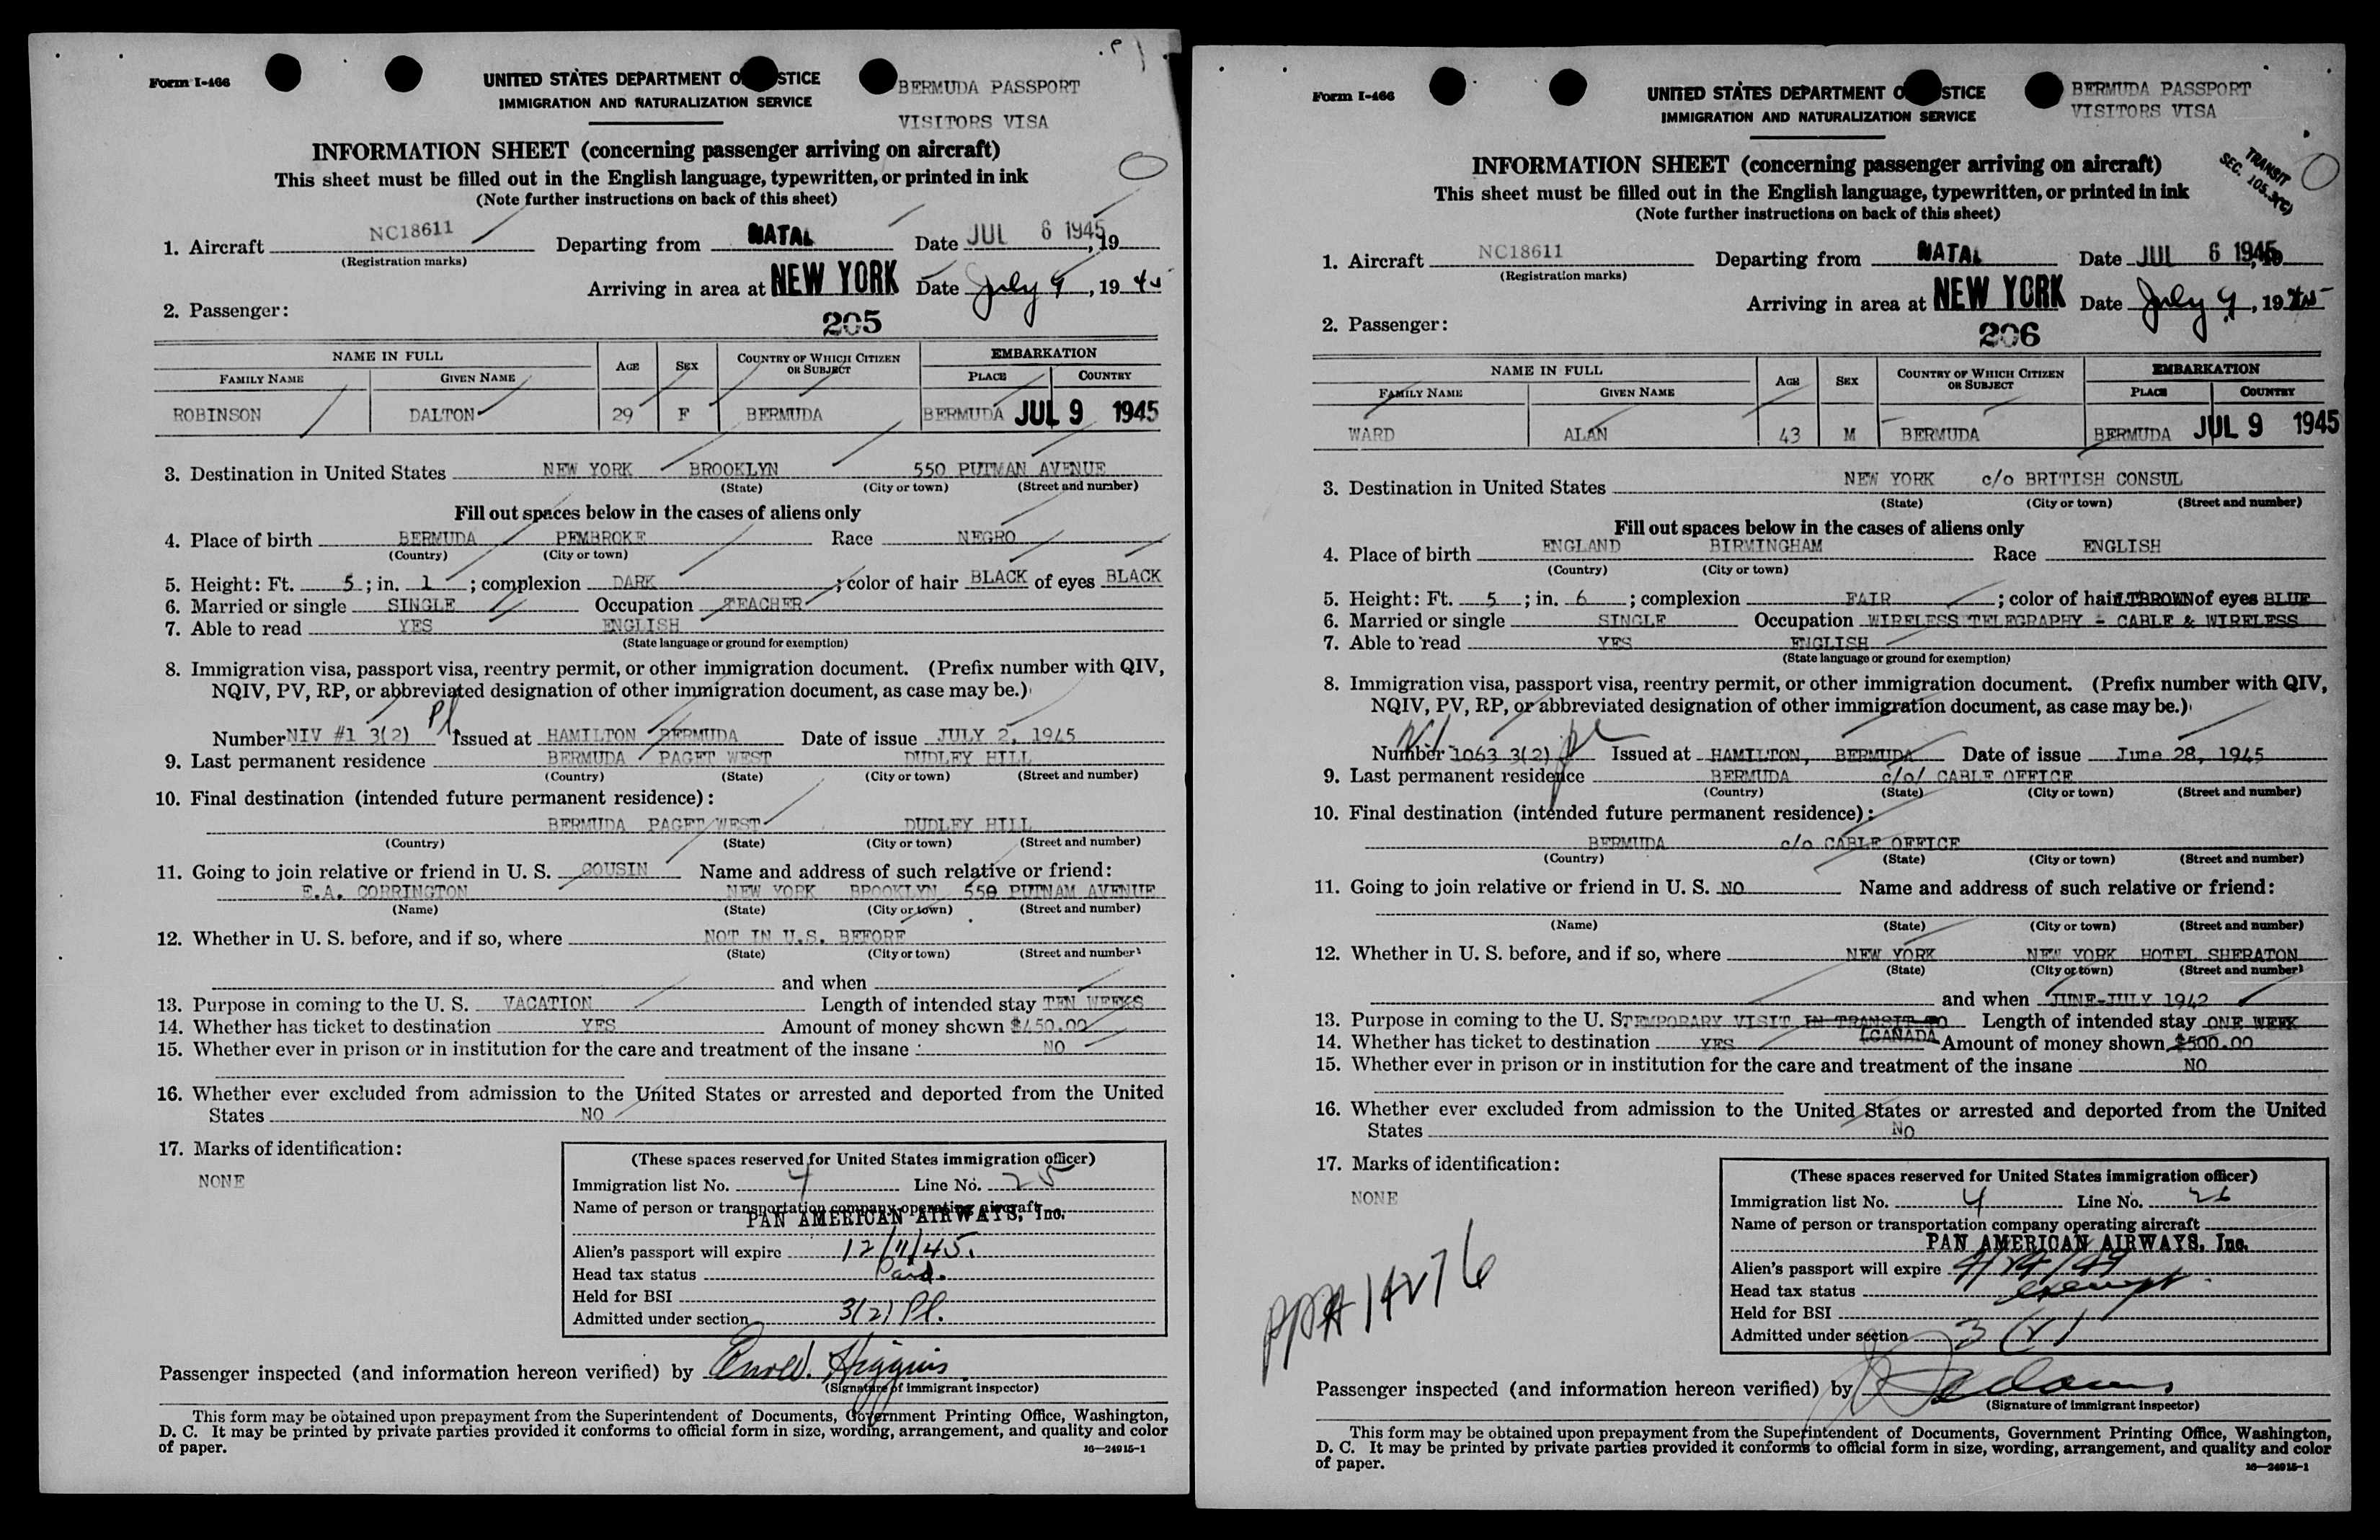 Form I-466
UNITED STATES DEPARTMENT O STICE
IMMIGRATION AND NATURALIZATION SERVICE
BERMUDA PASSPORT
VISITORS VISA
INFORMATION SHEET (concerning passenger arriving on aircraft)
This sheet must be filled out in the English language, typewritten, or printed in ink
(Note further instructions on back of this sheet)
1. Aircraft NC18611 Departing from NATAL Date JUL 6 1945, 19
(Registration marks)
Arriving in area at NEW YORK Date July 9, 1945
2. Passenger:
205
NAME IN FULL AGE SEX COUNTRY OF WHICH CITIZEN OR SUBJECT EMBARKATION
FAMILY NAME GIVEN NAME PLACE COUNTRY
ROBINSON DALTON 29 F BERMUDA BERMUDA JUL 9 1945
3. Destination in United States NEW YORK BROOKLYN 550 PUTMAN AVENUE
(State) (City or town) (Street and number)
Fill out spaces below in the cases of aliens only
4. Place of birth BERMUDA PEMBROKE Race NEGRO
(Country) (City or town)
5. Height: Ft. 5; in. 1; complexion DARK; color of hair BLACK of eyes BLACK
6. Married or single SINGLE Occupation TEACHER
7. Able to read YES ENGLISH
(State language or ground for exemption)
8. Immigration visa, passport visa, reentry permit, or other immigration document. (Prefix number with QIV,
NQIV, PV, RP, or abbreviated designation of other immigration document, as case may be.)
Number NIV #1 3(2) Pl Issued at HAMILTON BERMUDA Date of issue JULY 2, 1945
9. Last permanent residence BERMUDA PAGET WEST DUDLEY HILL
(Country) (State) (City or town) (Street and number)
10. Final destination (intended future permanent residence):
BERMUDA PAGET WEST DUDLEY HILL
(Country) (State) (City or town) (Street and number)
11. Going to join relative or friend in U. S. COUSIN Name and address of such relative or friend:
E.A. CORRINGTON NEW YORK BROOKLYN 550 PUTNAM AVENUE
(Name) (State) (City or town) (Street and number)
12. Whether in U. S. before, and if so, where NOT IN U.S. BEFORE
(State) (City or town) (Street and number)
and when
13. Purpose in coming to the U. S. VACATION Length of intended stay TEN WEEKS
14. Whether has ticket to destination YES Amount of money shown $450.00
15. Whether ever in prison or in institution for the care and treatment of the insane NO
16. Whether ever excluded from admission to the United States or arrested and deported from the United
States NO
17. Marks of identification:
NONE
(These spaces reserved for United States immigration officer)
Immigration list No. 4 Line No. 25
Name of person or transportation company operating aircraft
PAN AMERICAN AIRWAYS, Inc.
Alien's passport will expire 12/11/45.
Head tax status Paid.
Held for BSI
Admitted under section 3(2) Pl.
Passenger inspected (and information hereon verified) by Higgins
(Signature of immigrant inspector)
This form may be obtained upon prepayment from the Superintendent of Documents, Government Printing Office, Washington,
D. C. It may be printed by private parties provided it conforms to official form in size, wording, arrangement, and quality and color
of paper.
16—24915-1
Form I-466
UNITED STATES DEPARTMENT O STICE
IMMIGRATION AND NATURALIZATION SERVICE
BERMUDA PASSPORT
VISITORS VISA
TRANSIT
SEC. 105.3(c)
INFORMATION SHEET (concerning passenger arriving on aircraft)
This sheet must be filled out in the English language, typewritten, or printed in ink
(Note further instructions on back of this sheet)
1. Aircraft NC18611 Departing from NATAL Date JUL 6 1945
(Registration marks)
Arriving in area at NEW YORK Date July 9, 1945
2. Passenger:
206
NAME IN FULL AGE SEX COUNTRY OF WHICH CITIZEN OR SUBJECT EMBARKATION
FAMILY NAME GIVEN NAME PLACE COUNTRY
WARD ALAN 43 M BERMUDA BERMUDA JUL 9 1945
3. Destination in United States NEW YORK c/o BRITISH CONSUL
(State) (City or town) (Street and number)
Fill out spaces below in the cases of aliens only
4. Place of birth ENGLAND BIRMINGHAM Race ENGLISH
(Country) (City or town)
5. Height: Ft. 5; in. 6; complexion FAIR; color of hair LTBROWN of eyes BLUE
6. Married or single SINGLE Occupation WIRELESS TELEGRAPHY - CABLE & WIRELESS
7. Able to read YES ENGLISH
(State language or ground for exemption)
8. Immigration visa, passport visa, reentry permit, or other immigration document. (Prefix number with QIV,
NQIV, PV, RP, or abbreviated designation of other immigration document, as case may be.)
Number 1063 3(2) pl Issued at HAMILTON, BERMUDA Date of issue June 28, 1945
9. Last permanent residence BERMUDA c/o/ CABLE OFFICE
(Country) (State) (City or town) (Street and number)
10. Final destination (intended future permanent residence):
BERMUDA c/o CABLE OFFICE
(Country) (State) (City or town) (Street and number)
11. Going to join relative or friend in U. S. NO Name and address of such relative or friend:
(Name) (State) (City or town) (Street and number)
12. Whether in U. S. before, and if so, where NEW YORK NEW YORK HOTEL SHERATON
(State) (City or town) (Street and number)
and when JUNE-JULY 1942
13. Purpose in coming to the U. S. TEMPORARY VISIT IN TRANSIT TO Length of intended stay ONE WEEK
14. Whether has ticket to destination YES CANADA Amount of money shown $500.00
15. Whether ever in prison or in institution for the care and treatment of the insane NO
16. Whether ever excluded from admission to the United States or arrested and deported from the United
States No
17. Marks of identification:
NONE
(These spaces reserved for United States immigration officer)
Immigration list No. 4 Line No. 26
Name of person or transportation company operating aircraft
PAN AMERICAN AIRWAYS, Inc.
Alien's passport will expire
Head tax status exempt
Held for BSI
Admitted under section 3(2)
Passenger inspected (and information hereon verified) by Adams
(Signature of immigrant inspector)
This form may be obtained upon prepayment from the Superintendent of Documents, Government Printing Office, Washington,
D. C. It may be printed by private parties provided it conforms to official form in size, wording, arrangement, and quality and color
of paper.
16—24915-1